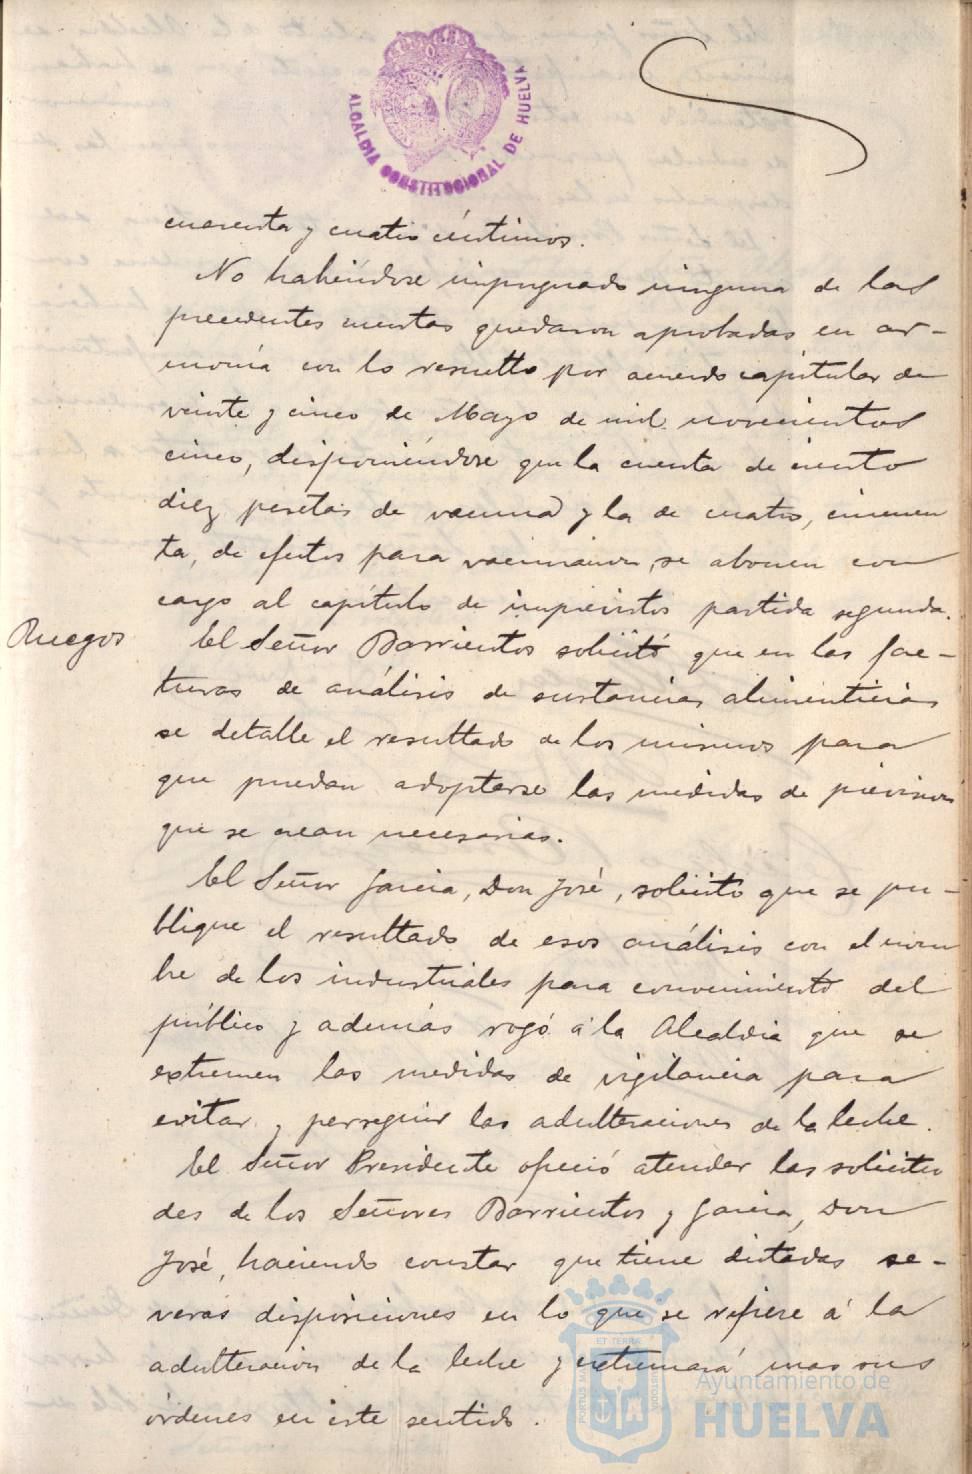 ALCALDIA CONSTITUCIONAL DE HUELVA
cuarenta y cuatro céntimos.
No habiéndose impugnado ninguna de las
precedentes cuentas quedaron aprobadas en ar-
monía con lo resuelto por acuerdo capitular de
veinte y cinco de Mayo de mil novecientos
cinco, disponiéndose que la cuenta de ciento
diez pesetas de vacuna y la de cuatro, cincuen
ta, de efectos para vacunación, se abonen con
cargo al capítulo de imprevistos partida segunda.
Ruegos
El Señor Barrientos solicitó que en las fac-
turas de análisis de sustancias alimenticias
se detalle el resultado de los mismos para
que puedan adoptarse las medidas de previsión
que se crean necesarias.
El Señor Garcia, Don José, solicito que se pu-
blique el resultado de esos análisis con el nom
bre de los industriales para conocimiento del
público y además rogó á la Alcaldia que se
extremen las medidas de vigilancia para
evitar y perseguir las adulteraciones de la leche.
El Señor Presidente ofreció atender las solicitu
des de los Señores Barrientos y Garcia, Don
José, haciendo constar que tiene dictadas se-
veras disposiciones en lo que se refiere á la
adulteracion de la leche y extremará mas sus
órdenes en este sentido.
ET TERRÆ
PORTUS MARIS
CUSTODIA
Ayuntamiento de
HUELVA